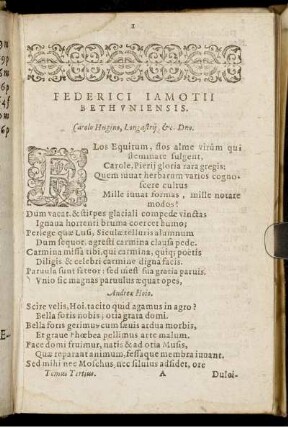 1
FEDERICI IAMOTII
BETHVNIENSIS.
Carolo Hugino, Longastrij, &c. Dno.
FLos Equitum, flos alme virûm qui
stemmate fulgent,
Carole, Pierij gloria rara gregis;
Quem iuuat herbarum varios cognoscere
cultus
Mille iuuat formas, mille notare
modos?
Dum vacat, & stirpes glaciali compede vinctas
Ignaua hortenti bruma coërcet humo;
Perlege quæ Lusi, Siculæ telluris alumnum
Dum sequor, agresti carmina clausa pede.
Carmina missa tibi, qui carmina, quiq; poëtis
Diligis & celebri carmine digna facis.
Paruula sunt fateor: sed inest sua gratia paruis.
Vnio sic magnas paruulus æquat opes,
Andreæ Hoio.
Scire velis, Hoi, tacito quid agamus in agro?
Bella foris nobis; otia grata domi.
Bella foris gerimus cum sæuis ardua morbis,
Et graue Phœbea pellimus arte malum.
Pace domi fruimur, natis & ad otia Musis,
Quæ reparant animum, fessaque membra iuuant.
Sed mihi nec Moschus, nec siluius adsidet, ore
Tomus Tertius. A Dulci-